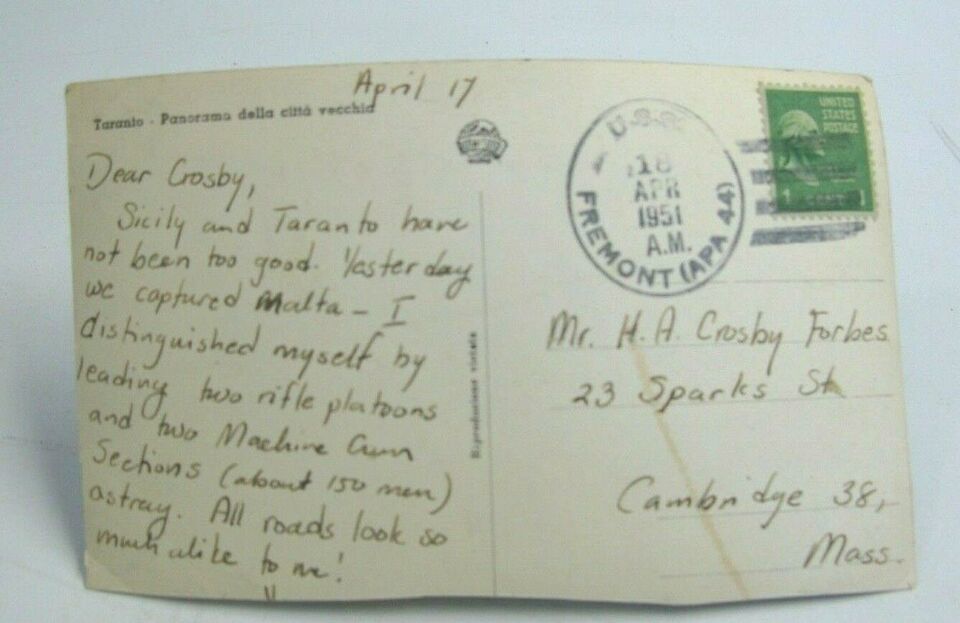 April 17
Taranto - Panorama della città vecchia
Dear Crosby,
Sicily and Taranto have
not been too good. Yesterday
we captured Malta - I
distinguished myself by
leading two rifle platoons
and two Machine Gun
Sections (about 150 men)
astray. All roads look so
much alike to me!
Riproduzione vietata
U.S.S.
18
APR
1951
A.M.
FREMONT (APA 44)
UNITED
STATES
POSTAGE
1 1
Mr. H. A. Crosby Forbes
23 Sparks St
Cambridge 38,
Mass.